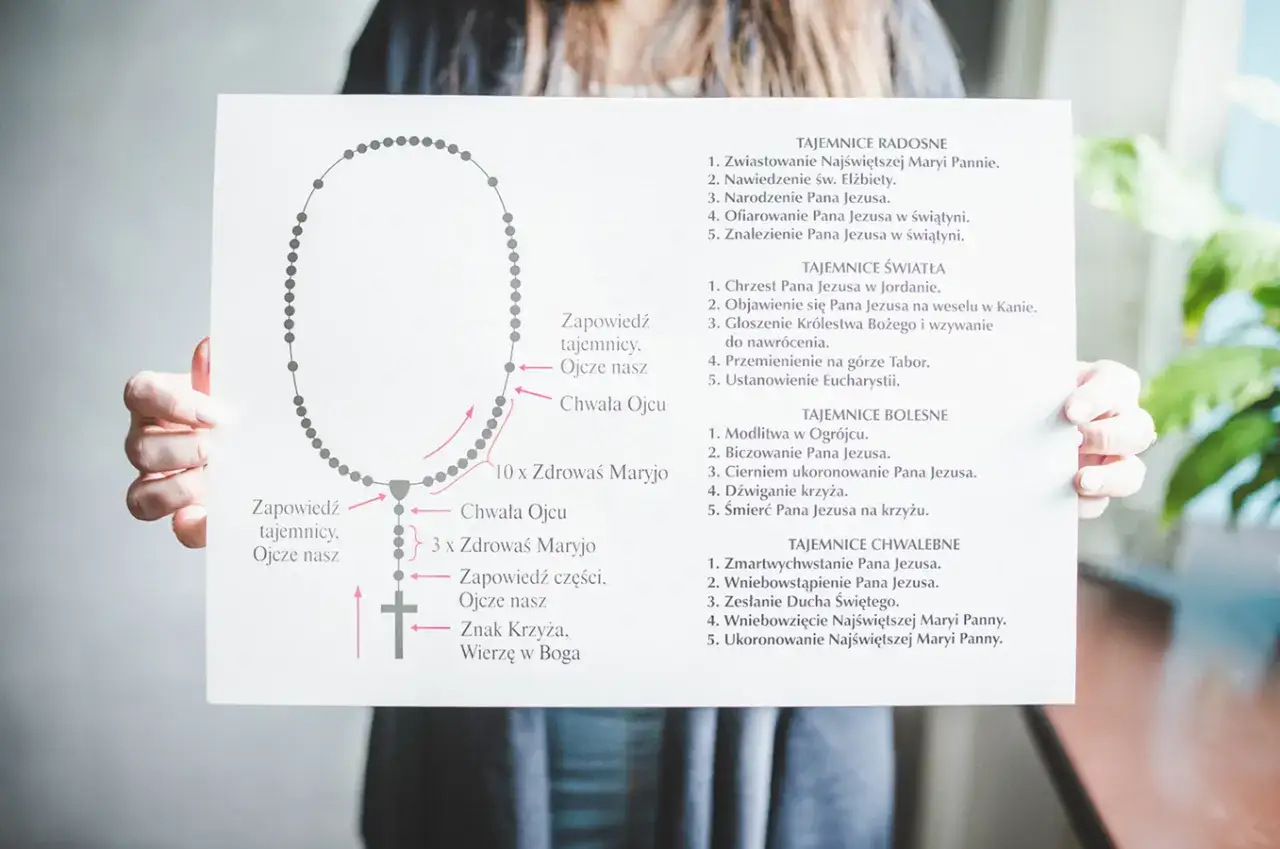 Zapowiedź
tajemnicy,
Ojcze nasz
Chwała Ojcu
10 x Zdrowaś Maryjo
Zapowiedź
tajemnicy,
Ojcze nasz
Chwała Ojcu
3 x Zdrowaś Maryjo
Zapowiedź części,
Ojcze nasz
Znak Krzyża,
Wierzę w Boga
TAJEMNICE RADOSNE
1. Zwiastowanie Najświętszej Maryi Pannie.
2. Nawiedzenie św. Elżbiety.
3. Narodzenie Pana Jezusa.
4. Ofiarowanie Pana Jezusa w świątyni.
5. Znalezienie Pana Jezusa w świątyni.
TAJEMNICE ŚWIATŁA
1. Chrzest Pana Jezusa w Jordanie.
2. Objawienie się Pana Jezusa na weselu w Kanie.
3. Głoszenie Królestwa Bożego i wzywanie
do nawrócenia.
4. Przemienienie na górze Tabor.
5. Ustanowienie Eucharystii.
TAJEMNICE BOLESNE
1. Modlitwa w Ogrójcu.
2. Biczowanie Pana Jezusa.
3. Cierniem ukoronowanie Pana Jezusa.
4. Dźwiganie krzyża.
5. Śmierć Pana Jezusa na krzyżu.
TAJEMNICE CHWALEBNE
1. Zmartwychwstanie Pana Jezusa.
2. Wniebowstąpienie Pana Jezusa.
3. Zesłanie Ducha Świętego.
4. Wniebowzięcie Najświętszej Maryi Panny.
5. Ukoronowanie Najświętszej Maryi Panny.